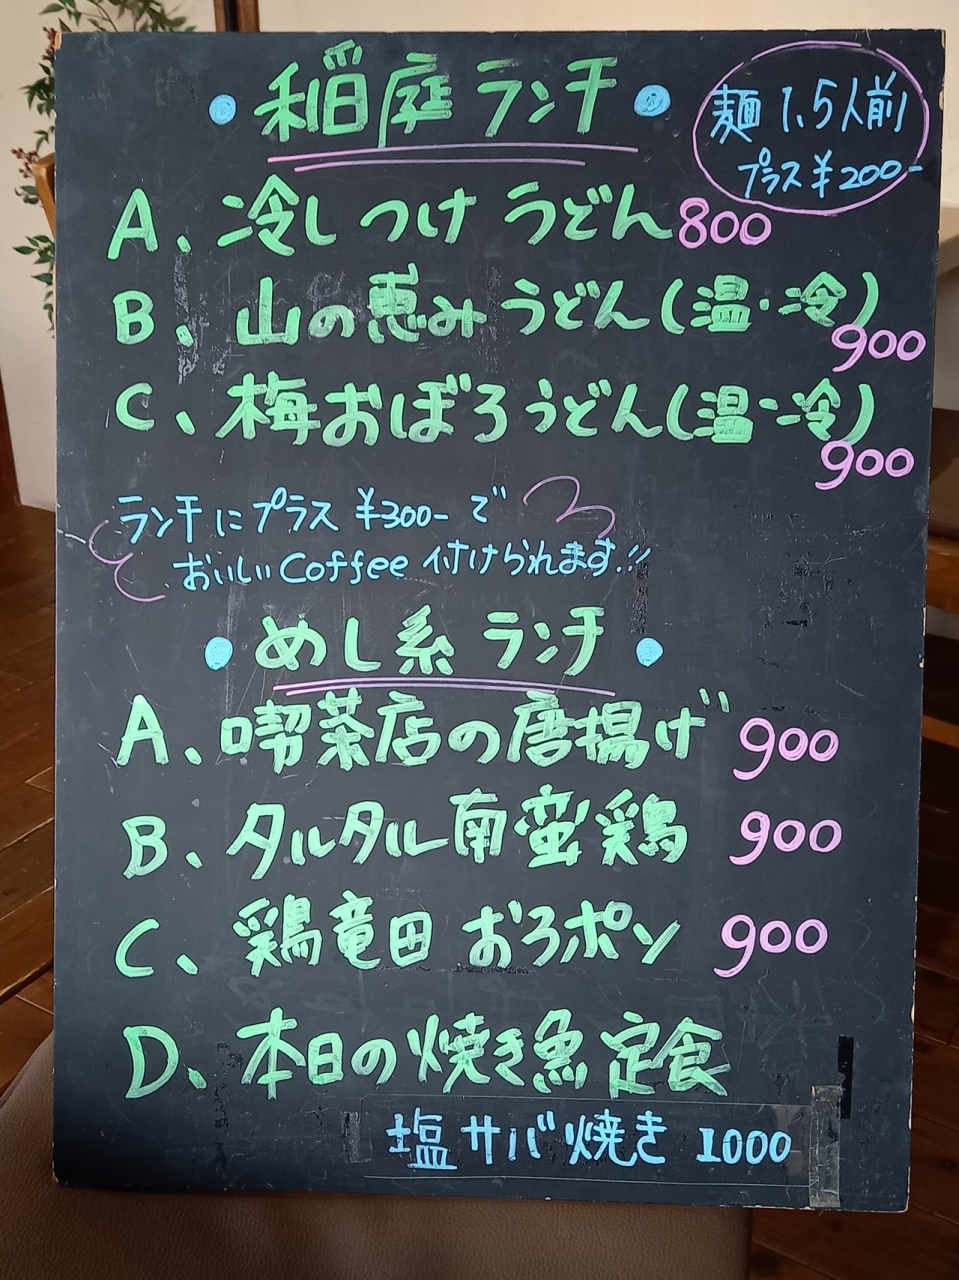 稲庭ランチ
麺 1.5人前
プラス¥200-
A、冷しつけうどん 800
B、山の恵みうどん(温・冷)
900
C、梅おぼろうどん(温・冷)
900
ランチにプラス ¥300- で
おいしいCoffee 付けられます!!
めし系ランチ
A、喫茶店の唐揚げ 900
B、タルタル南蛮鶏 900
C、鶏竜田 おろポン 900
D、本日の焼き魚定食
塩サバ焼き 1000